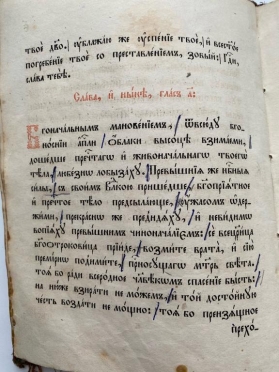 твоѐ дв҃о. ѹ҆блажю же ѹ҆спе́нїе твоѐ, и҆ всечⷭ҇тоѐ
погребе́нїе твоѐ со преставле́нїемъ, зовы́й: гдⷭ҇и,
сла́ва тебѣ̀.
Сла́ва, и҆ ны́нѣ, гла́съ а҃:
Бгонача́льнымъ манове́нїемъ, ѿвсю́дꙋ бго-
но́снїи апⷭ҇ли ѻ҆́блаки высоцѣ̀ взима́еми,
доше́дше пречⷭ҇тагѡ и҆ живонача́льнагѡ твоегѡ̀
тѣ́ла, любе́знѡ лобыза́хꙋ. Превы́шнїѧ же нбⷭ҇ныѧ
си́лы, съ свои́мъ влⷣкою прише́дше, бгопрїѧ́тное
и҆ пречⷭ҇тое тѣ́ло предсыла́юще, ѹ҆́жасомъ ѡ҆дер-
жи́ми, прекра́снѡ же предидѧ́хꙋ, и҆ неви́димѡ
вопїѧ́хꙋ превы́шнимъ чинонача́лїемъ: сѐ всецри́ца
бгоотрокови́ца прїи́де, возми́те врата̀, и҆ сїю̀
преми́рнѡ подими́те, присносꙋ́щагѡ мт҃рь свѣ́та.
тоѧ́ бо ра́ди всеро́дное человѣ́кѡмъ спасе́нїе бы́сть:
на ню́же взира́ти не мо́жемъ, и҆ то́й досто́йнꙋю
че́сть возда́ти не мо́щно: тоѧ́ бо преизѧ́щное